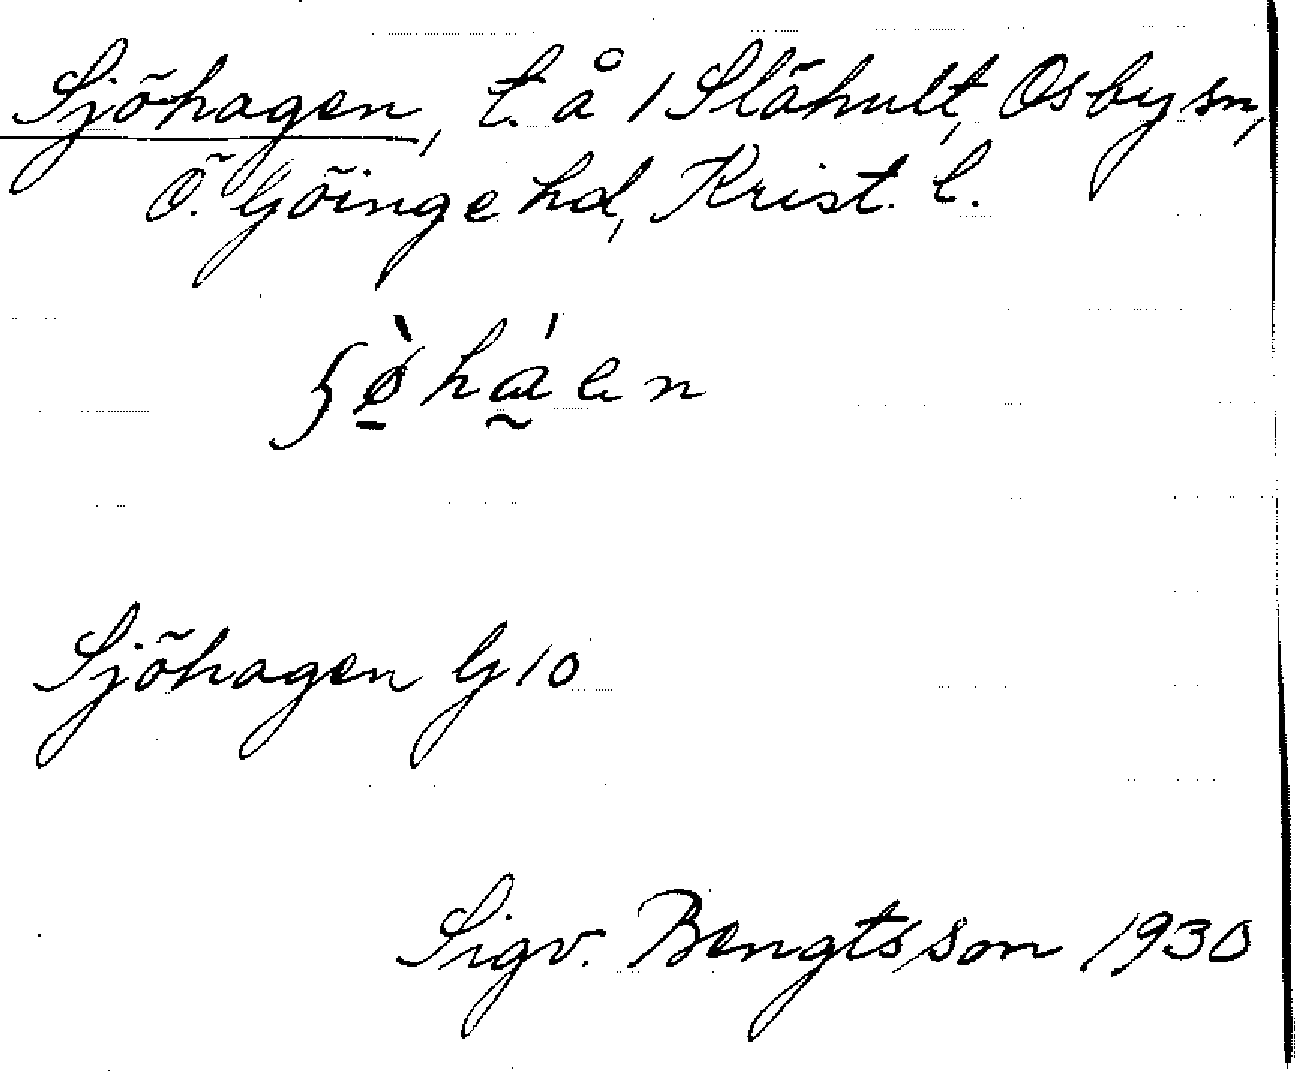 Sjöhagen, t. å 1 Slähult, Osby sn,
Ö. Göinge hd, Krist. l.
Sjöhagen G 10
Sigv. Bengtsson 1930